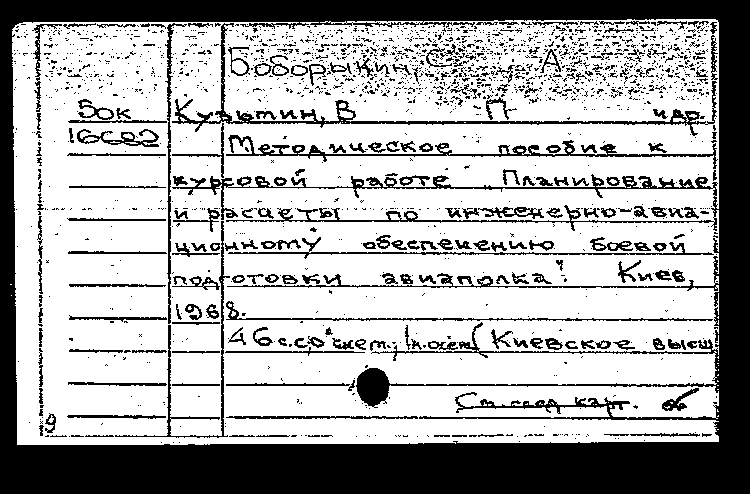 Боборыкин, С А
Бок Кузьмин, В П идр
16С22 Методическое пособие к
курсовой работе „Планирование
и расчеты по инженерно-авиа-
ционному обеспечению боевой
подготовки авиаполка". Киев,
1968.
46 с. со схем.; (Киевское высш
См. след карт.
9